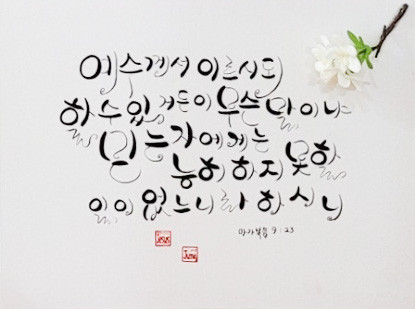 예수께서 이르시되
할 수 있거든이 무슨 말이냐
믿는 자에게는
능히 하지 못할
일이 없느니라 하시니
마가복음 9:23
JESUS
Jung